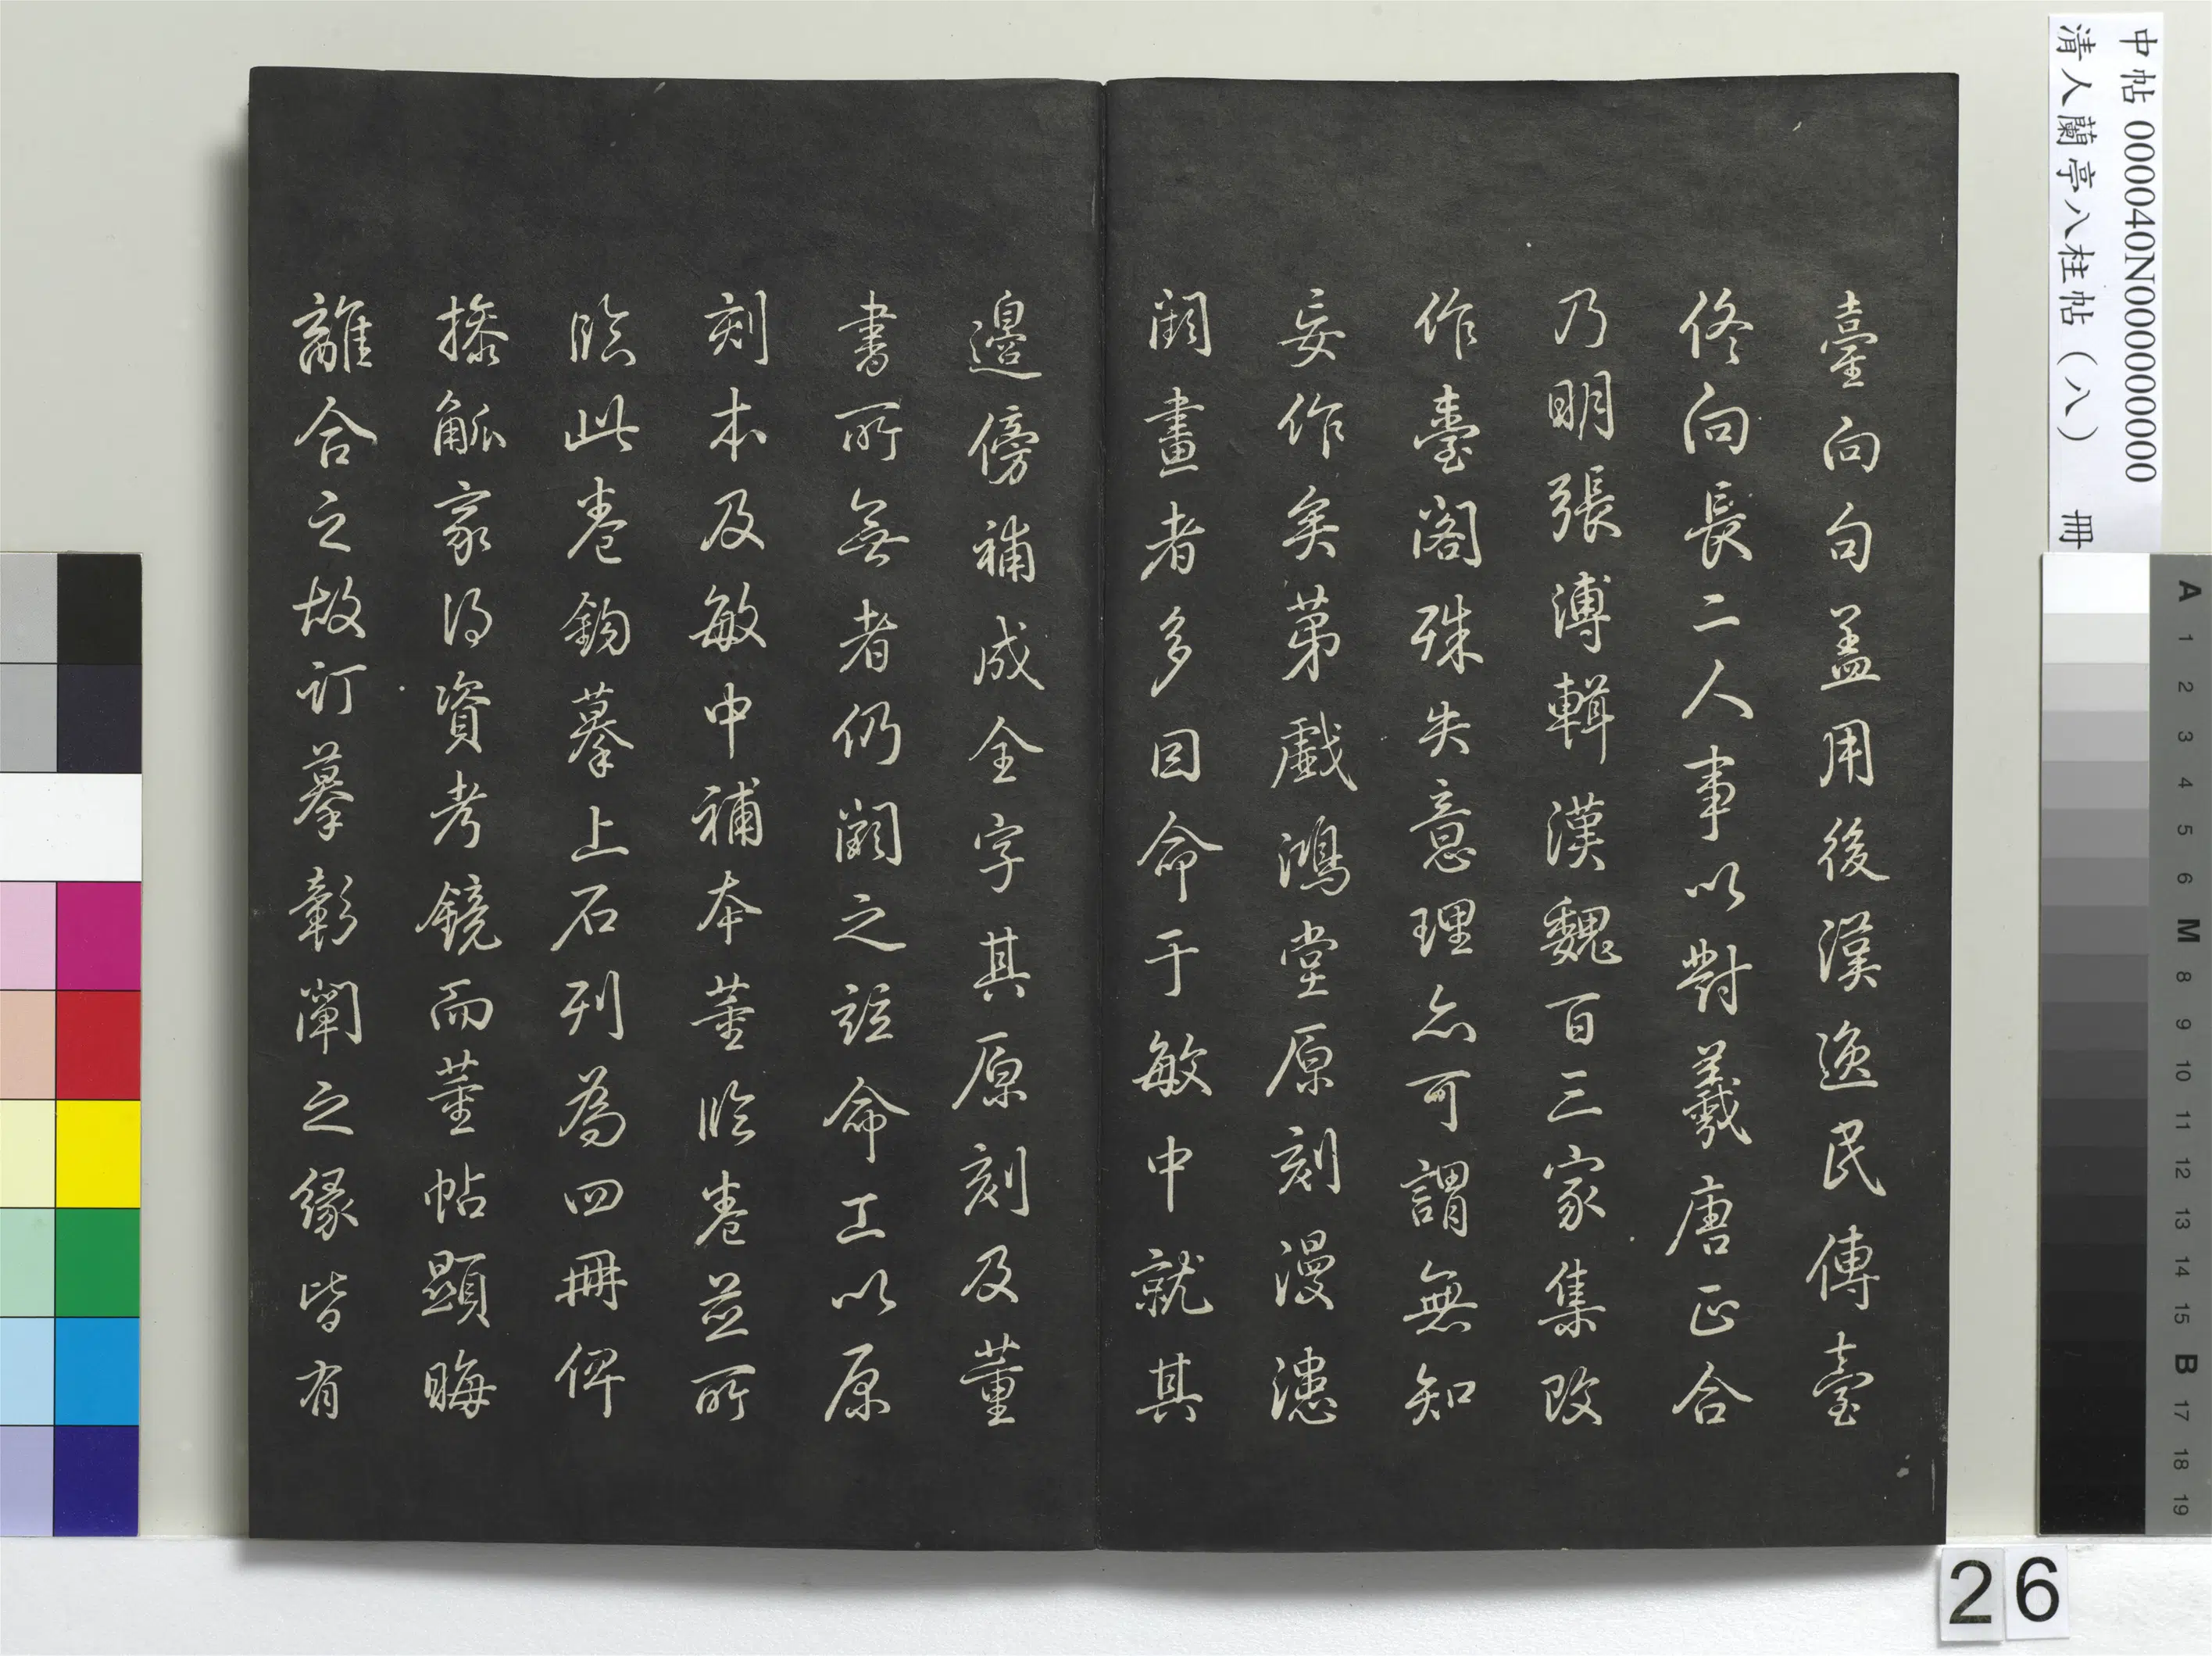 中帖 000040N000000000
清人蘭亭八柱帖（八） 冊
臺向句盖用後漢逸民傳臺
佟向長二人事以對羲唐正合
乃明張溥輯漢魏百三家集改
作臺閣殊失意理亦可謂無知
妄作矣第戲鴻堂原刻漫漶
闕畫者多因命于敏中就其
邊傍補成全字其原刻及董
書所無者仍闕之竝命工以原
刻本及敏中補本董臨卷並所
臨此卷鉤摹上石列為四冊俾
操觚家得資考鏡而董帖顯晦
離合之故訂摹彰闡之緣皆有
A 1 2 3 4 5 6 M 8 9 10 11 12 13 14 15 B 17 18 19
26